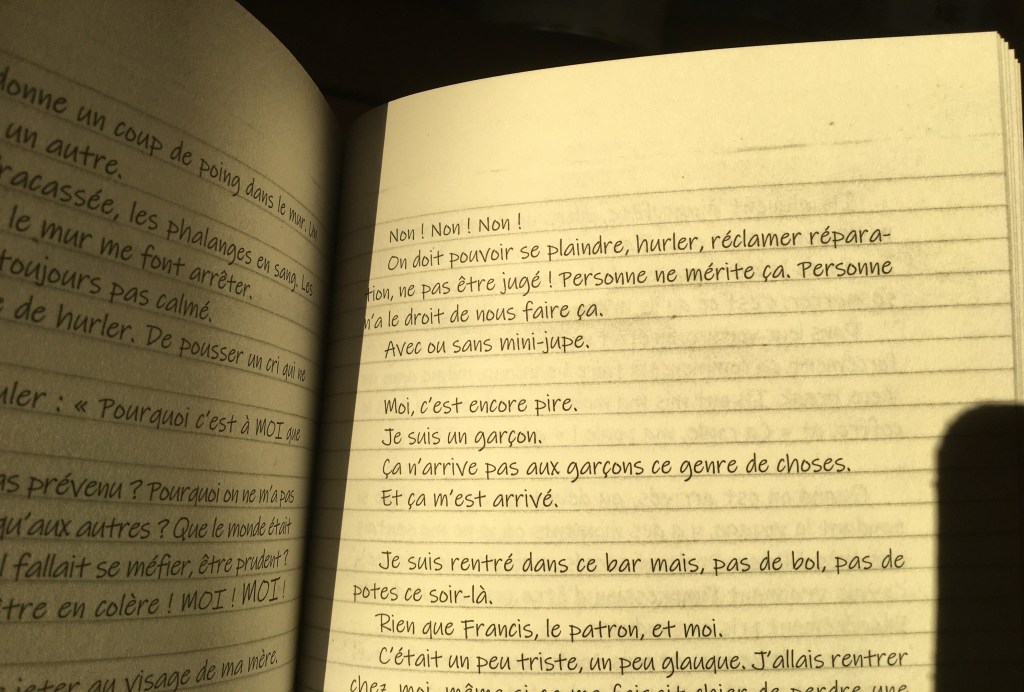 donne un coup de poing dans le mur. Un
un autre.
racassée, les phalanges en sang. Les
le mur me font arrêter.
toujours pas calmé.
de hurler. De pousser un cri qui ne
uler : « Pourquoi c'est à MOI que
as prévenu ? Pourquoi on ne m'a pas
qu'aux autres ? Que le monde était
l fallait se méfier, être prudent ?
tre en colère ! MOI ! MOI !
jeter au visage de ma mère.
Non ! Non ! Non !
On doit pouvoir se plaindre, hurler, réclamer répara-
tion, ne pas être jugé ! Personne ne mérite ça. Personne
n'a le droit de nous faire ça.
Avec ou sans mini-jupe.
Moi, c'est encore pire.
Je suis un garçon.
Ça n'arrive pas aux garçons ce genre de choses.
Et ça m'est arrivé.
Je suis rentré dans ce bar mais, pas de bol, pas de
potes ce soir-là.
Rien que Francis, le patron, et moi.
C'était un peu triste, un peu glauque. J'allais rentrer
chez moi, même si ça me faisait chier de perdre une